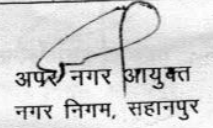 अपर नगर आयुक्त
नगर निगम, सहानपुर